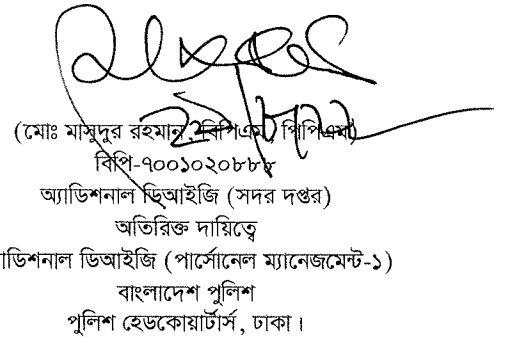 (মোঃ মাসুদুর রহমান, বিপিএম, পিপিএম)
বিপি-৭০০১০২০৮৮৮
অ্যাডিশনাল ডিআইজি (সদর দপ্তর)
অতিরিক্ত দায়িত্বে
াডিশনাল ডিআইজি (পার্সোনেল ম্যানেজমেন্ট-১)
বাংলাদেশ পুলিশ
পুলিশ হেডকোয়ার্টার্স, ঢাকা।